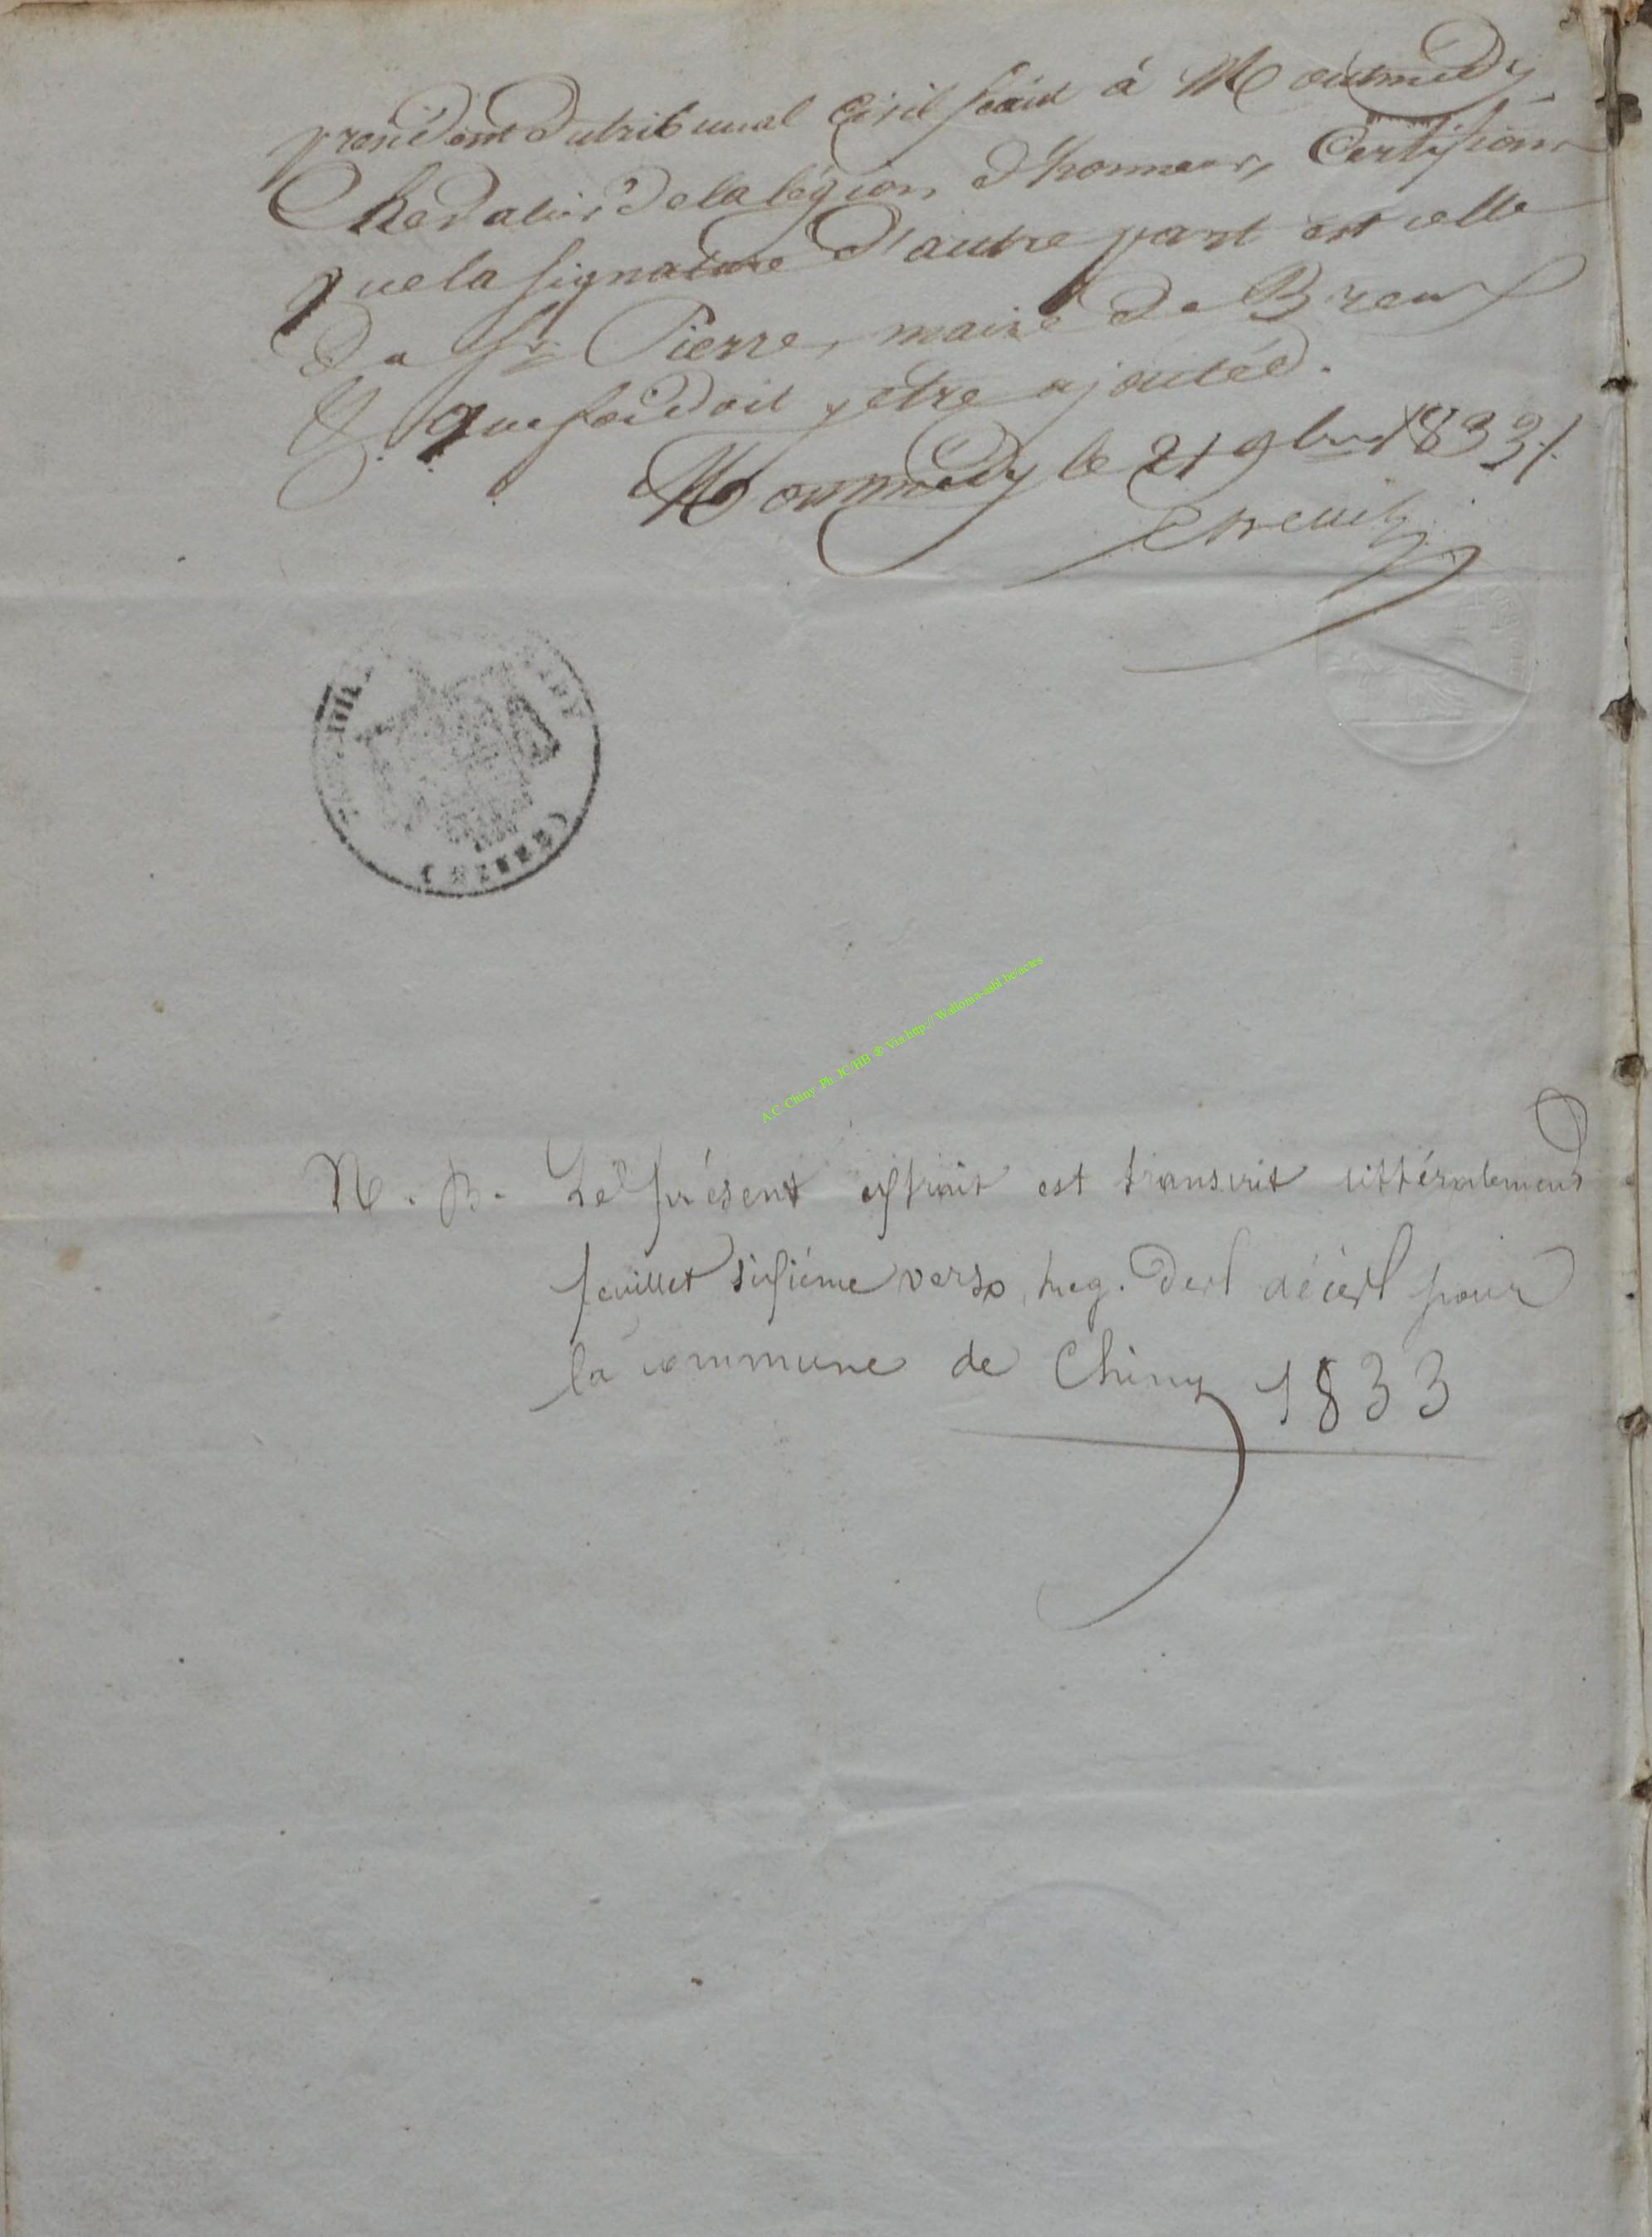 président du tribunal Civil séant à Montmédy
Chevalier de la légion d'honneur, Certifions
que la signature d'autre part est celle
du Sr. Pierre, maire de Breux
& que foi doit y être ajoutée.
Montmédy le 21 9bre 1833 /.
(MEUSE)
A.C. Chiny Ph. JC/HH ® Via http:// Wallonia-asbl.be/actes
N. B. Le présent extrait est transcrit littéralement
feuillet sixième verso, reg. des décès pour
la commune de Chiny 1833